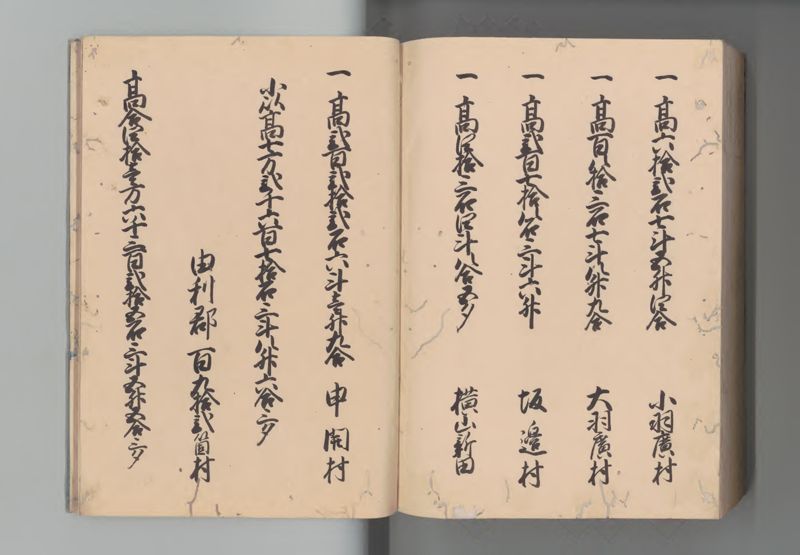 一 高六拾弐石七斗五升四合 小羽廣村
一 高百拾三石七斗八升九合 大羽廣村
一 高弐百七拾八石三斗六升 坂邉村
一 高四拾三石四斗八合五夕 横山新田
一 高弐百弐拾弐石六斗壱升九合 申開村
小以高七万弐千六百七拾石三斗八升六合三夕
由利郡 百九拾弐箇村
高合四拾壱万六千三百弐拾五石三斗五升五合三夕